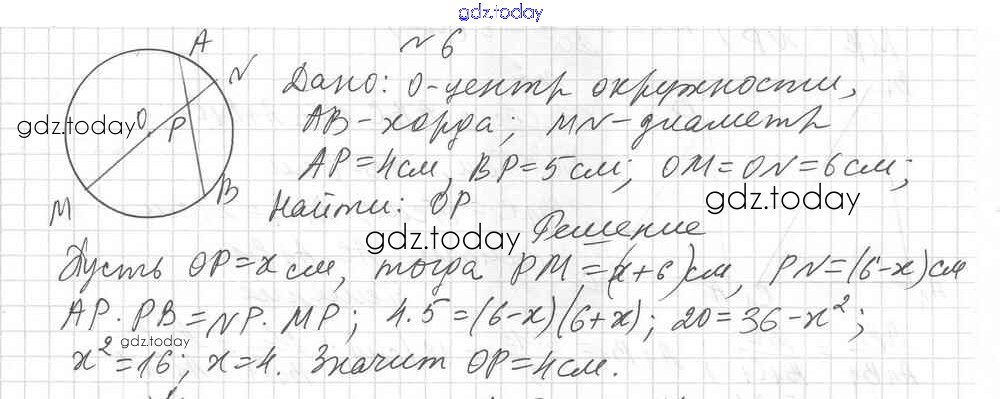 gdz.today
N 6
A
N
O
P
M
B
gdz.today
Дано: O-центр окружности,
AB-хорда; MN-диаметр
AP=4см, BP=5см; OM=ON=6см;
gdz.today
Найти: OP
gdz.today
Решение
Пусть OP=x см, тогда PM=(x+6)см, PN=(6-x)см
AP·PB=NP·MP; 4·5=(6-x)(6+x); 20=36-x²;
gdz.today
x²=16; x=4. Значит OP=4см.